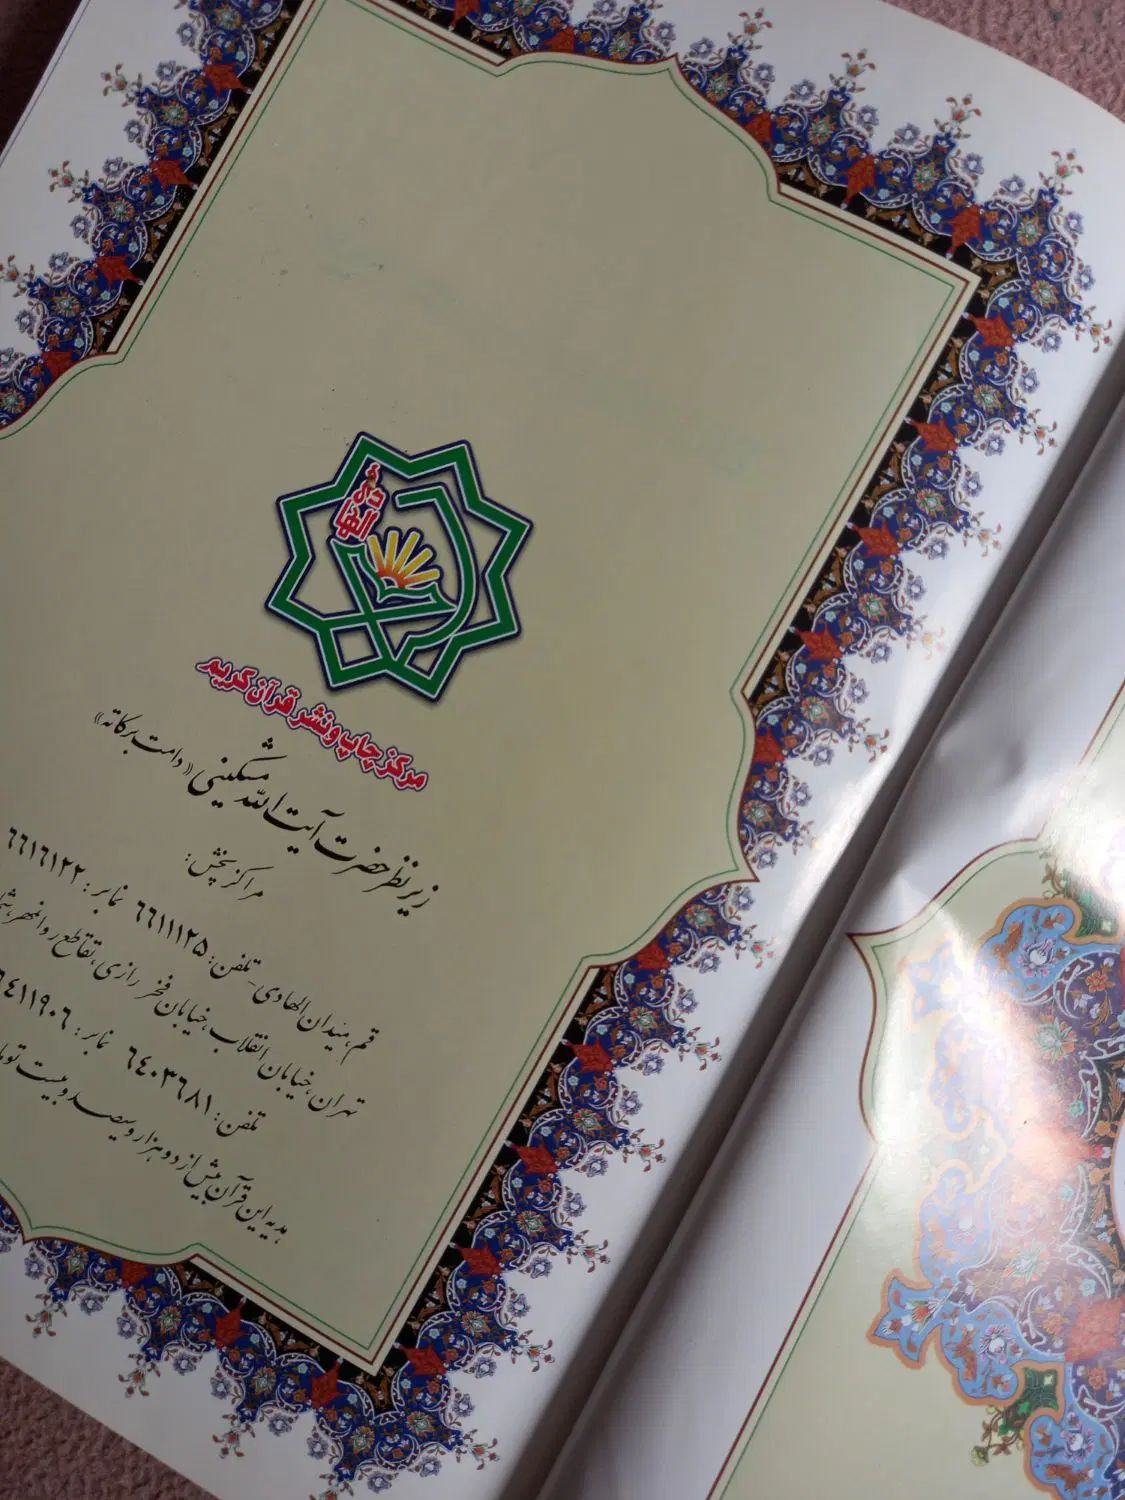 الهادی
مرکز چاپ و نشر قرآن کریم
زیر نظر حضرت آیت الله مشکینی «دامت برکاته»
مراکز پخش:
قم، میدان الهادی ـ تلفن: ۶۶۱۱۱۲۵ نمابر: ۶۶۱۶۱۲۲
تهران، خیابان انقلاب، خیابان فخر رازی، تقاطع روانمهر،
تلفن: ۶۴۰۳۶۸۱ نمابر: ۶۴۱۱۹۰۶
هدیه این قرآن بیش از دو هزار و سیصد و بیست